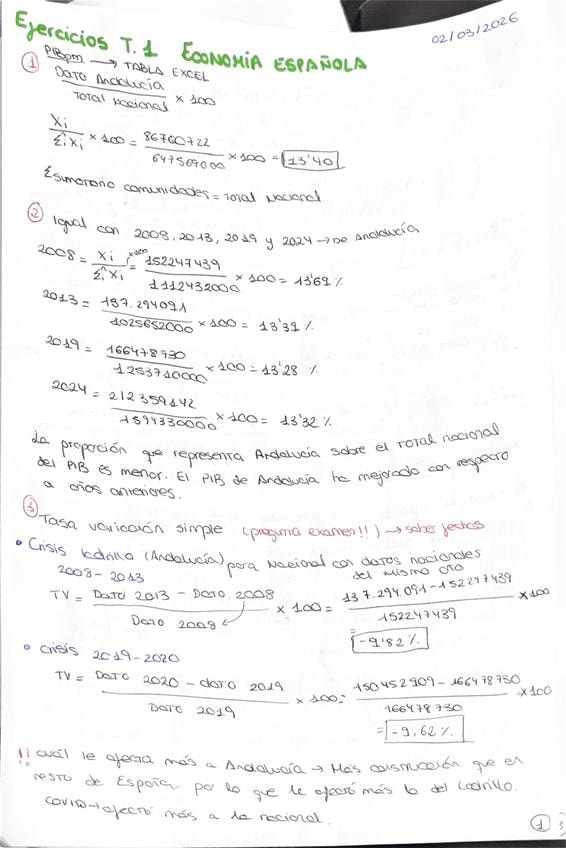 Ejercicios T.1 ECONOMÍA ESPAÑOLA
02/03/2026
PIBpm → TABLA EXCEL
① Dato Andalucía / Total Nacional × 100
Xi / Σi Xi × 100 = 86760722 / 647569000 × 100 = 13'40
Σ sumatorio comunidades = Total Nacional
② Igual con 2008, 2013, 2019 y 2024 → De Andalucía
2008 = Xi / Σi Xi ×100 = 152247439 / 1112432000 × 100 = 13'69 %
2013 = 137.294091 / 1025652000 × 100 = 13'39 %
2019 = 166478730 / 1253710000 × 100 = 13'28 %
2024 = 212359142 / 1594330000 × 100 = 13'32 %
La proporción que representa Andalucía sobre el total nacional
del PIB es menor. El PIB de Andalucía ha mejorado con respecto
a años anteriores.
③ Tasa variación simple (pregunta examen!!) → saber fechas
• Crisis ladrillo (Andalucía) para Nacional con datos nacionales
del mismo año
2008-2013
TV = Dato 2013 - Dato 2008 / Dato 2008 × 100 = 137.294.091-152247439 / 152247439 × 100
= -9'82 %
• Crisis 2019-2020
TV = Dato 2020 - dato 2019 / Dato 2019 × 100 = 150452909-166478730 / 166478730 × 100
= -9,62 %
!! cuál le afecta más a Andalucía → Más construcción que en
resto de España por lo que le afectó más lo del Ladrillo.
COVID → afectó más a la nacional.
① 3